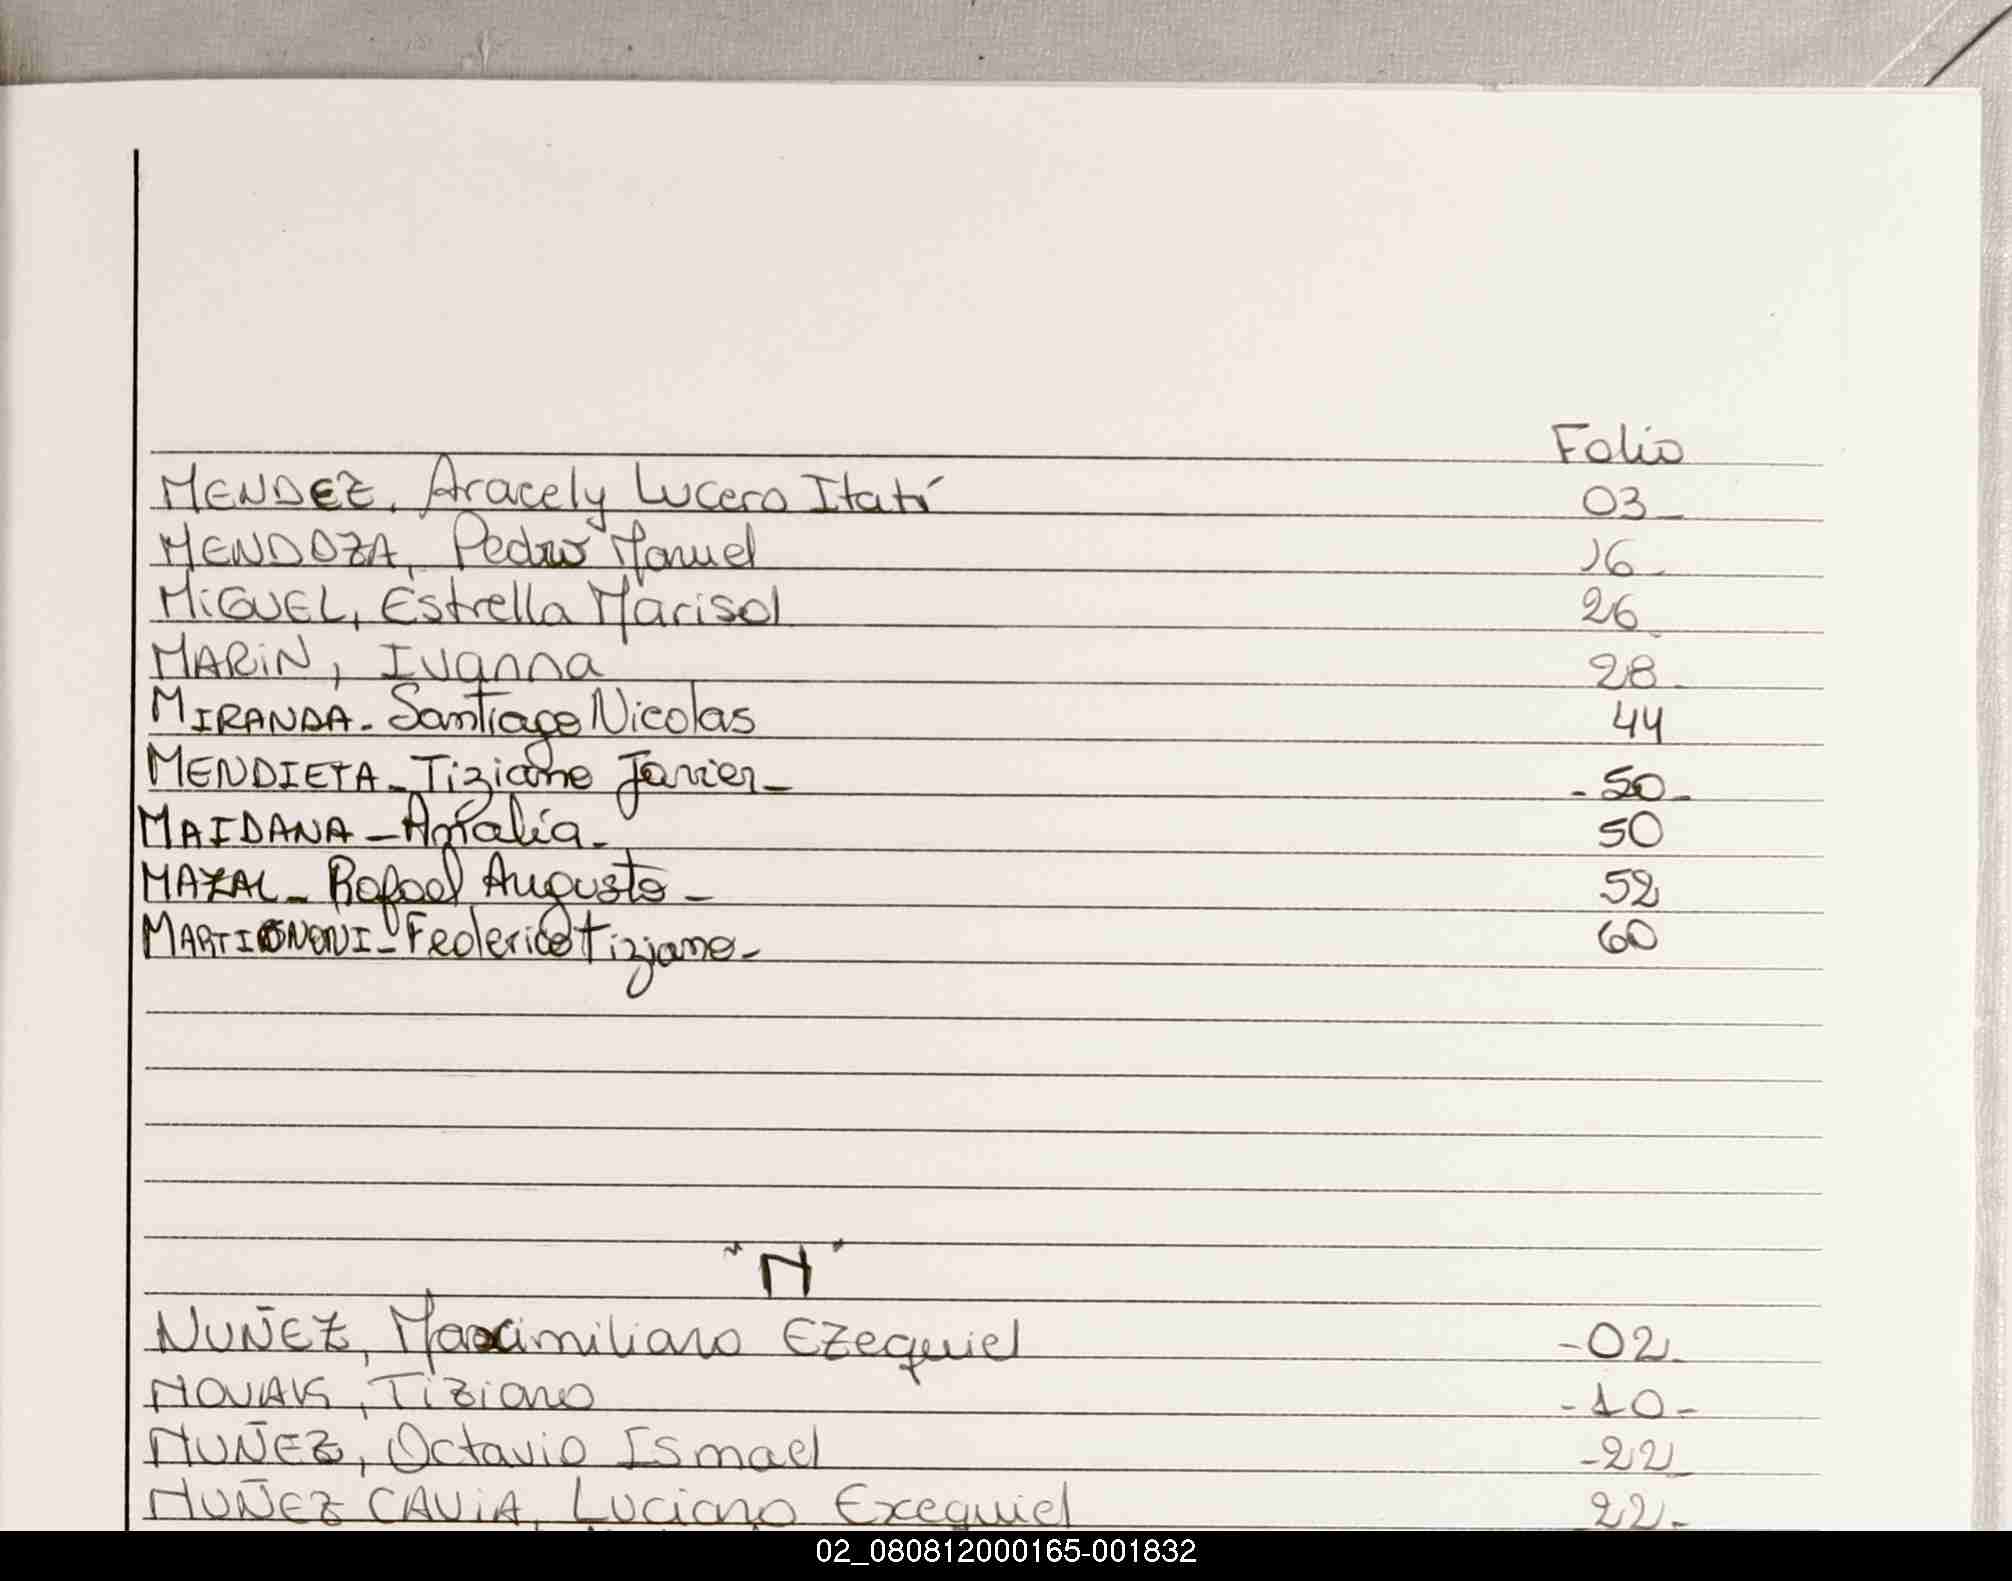 Folio
MENDEZ, Aracely Lucero Itatí 03_
MENDOZA, Pedro Manuel 16_
MiGUEL, Estrella Marisol 26_
MARiN, Ivanna 28_
MIRANDA. Santiago Nicolas 44
MENDIETA_Tiziano Javier_ -50_
MAIDANA_Amalia_ 50
MAZAL_ Rafael Augusto_ 52
_Federico Tiziano_ 60
"N"
NUÑEZ, Maximiliano Ezequiel -02_
NOVAK, Tiziano -10-
NUÑEZ, Octavio Ismael -22_
NUÑEZ CAViA, Luciano Exequiel 22_
02_080812000165-001832